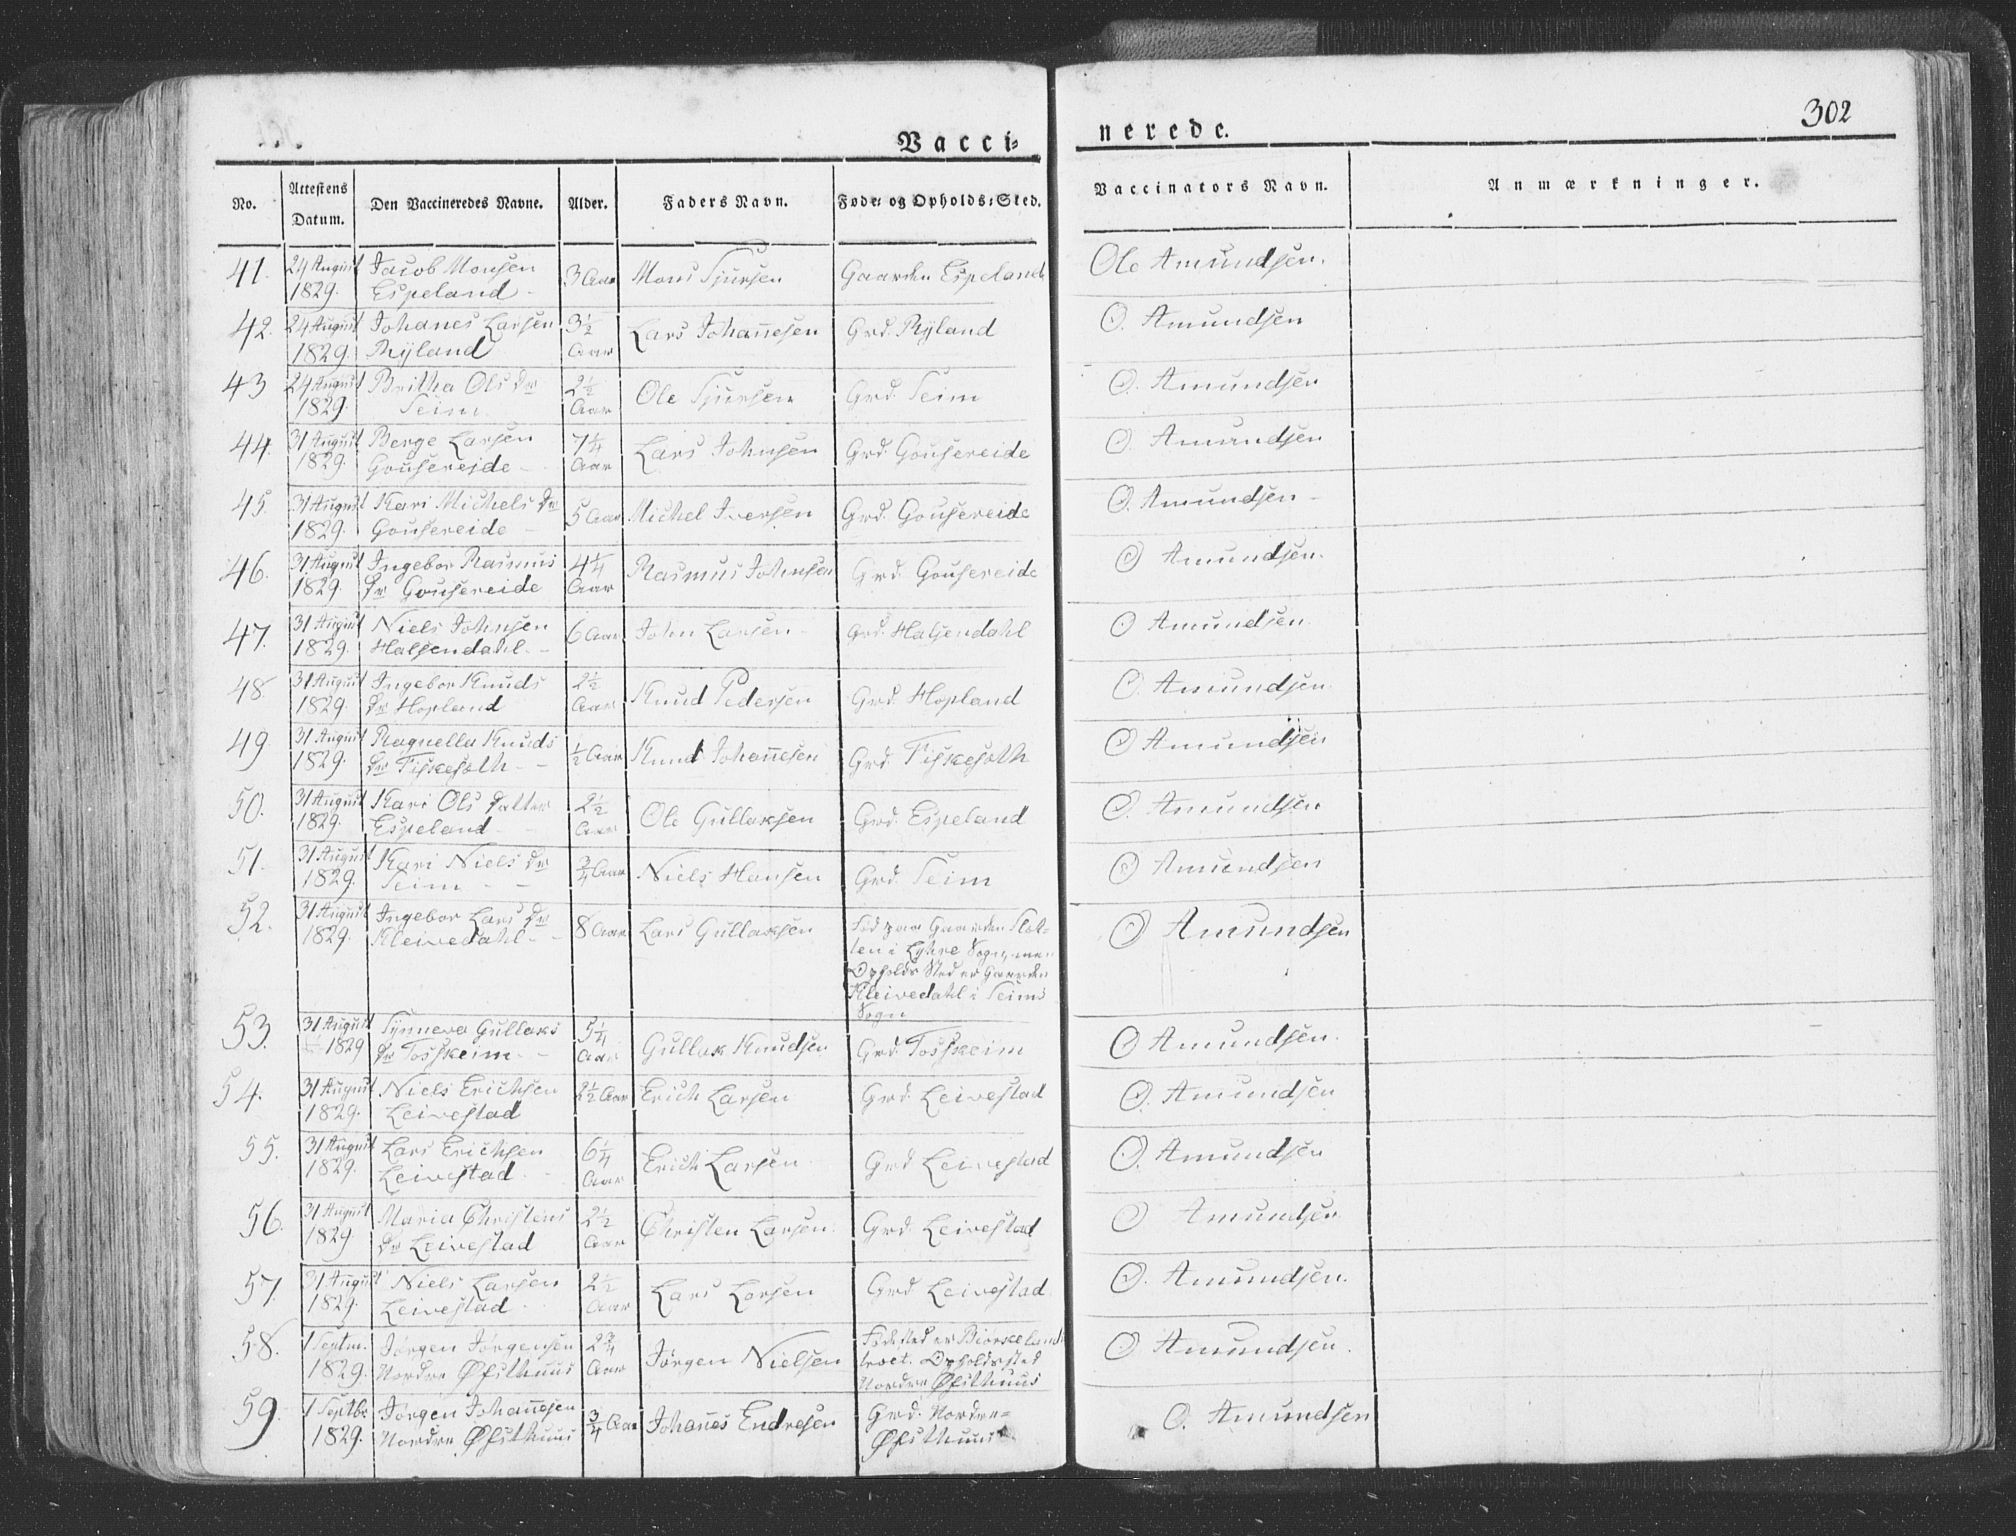 302
Vacci- nerede.
No. | Attestens Datum. | Den Vaccineredes Navne. | Alder. | Faders Navn. | Føde- og Opholds-Sted. | Vaccinators Navn. | Anmærkninger.
41. | 24 August 1829. | Jacob Monsen Espeland | 3 Aar | Mons Sjursen | Gaarden Espeland | Ole Amundsen.
42. | 24 August 1829. | Johanes Larsen Ryland | 3½ Aar | Lars Johan̅esen | Grd. Ryland | O. Amundsen
43 | 24 August 1829. | Britha Ols Dr Seim | 2½ Aar | Ole Sjursen | Grd. Seim | O. Amundsen
44. | 31 August 1829. | Berge Larsen Gousereide | 7¼ Aar | Lars Johnsen | Grd. Gousereide | O. Amundsen
45. | 31 August 1829. | Kari Michels Dr Gousereide | 5 Aar | Michel Iversen | Grd. Gousereide | O. Amundsen
46. | 31 August 1829. | Ingebor Rasmus Dr Gousereide | 4¼ Aar | Rasmus Johnsen | Grd. Gousereide | O Amundsen.
47. | 31 August 1829. | Niels Johnsen Halsendahl. | 6 Aar | John Larsen | Grd. Halsendahl | O Amundsen.
48 | 31 August 1829. | Ingebor Knuds Dr Hopland | 2½ Aar | Knud Pedersen | Grd. Hopland | O. Amundsen
49 | 31 August 1829. | Ragnella Knuds Dr Fiskesæth | ½ Aar | Knud Johan̅esen | Grd. Fiskesæth | O Amundsen
50. | 31 August 1829. | Kari Ols Datter Espeland | 2½ Aar | Ole Gullaksen | Grd. Espeland | O. Amundsen
51. | 31 August 1829. | Kari Niels Dr Seim | ¾ Aar | Niels Hansen | Grd. Seim | O Amundsen
52. | 31 August 1829. | Ingebor Lars Dr Kleivedahl | 8 Aar | Lars Gullaksen | Fød paa Gaarden Slet- ten i Lykre Sogn, men Opholds Sted er Gaarden Kleivedahl i Seims Sogn | O Amundsen
53. | 31 August 1829 | Synneva Gullaks Dr Fosskeim | 5¼ Aar | Gullak Knudsen | Grd. Fosskeim | O Amundsen.
54. | 31 August 1829. | Niels Erichsen Leivestad | 2½ Aar | Erich Larsen | Grd. Leivestad | O. Amundsen
55. | 31 August 1829. | Lars Erichsen Leivestad | 6¼ Aar | Erich Larsen | Grd Leivestad | O. Amundsen
56. | 31 August 1829 | Maria Christens Dr Leivestad | 2½ Aar | Christen Larsen. | Grd. Leivestad | O Amundsen
57. | 31 August 1829. | Niels Larsen Leivestad | 2½ Aar | Lars Larsen | Grd Leivestad | O. Amundsen.
58. | 1 Septm. 1829. | Jørgen Jørgensen Nordre Øfsthuus | 2¾ Aar | Jørgen Nielsen | Fødested er Biørkeland træet. Opholdssted Nordre Øfsthuus | O Amundsen.
59. | 1 Septbr 1829. | Jørgen Johan̅esen Nordre Øfsthuus | ¾ Aar | Johan̅es Endresen | Grd. Nordre- Øfsthuus | O. Amundsen